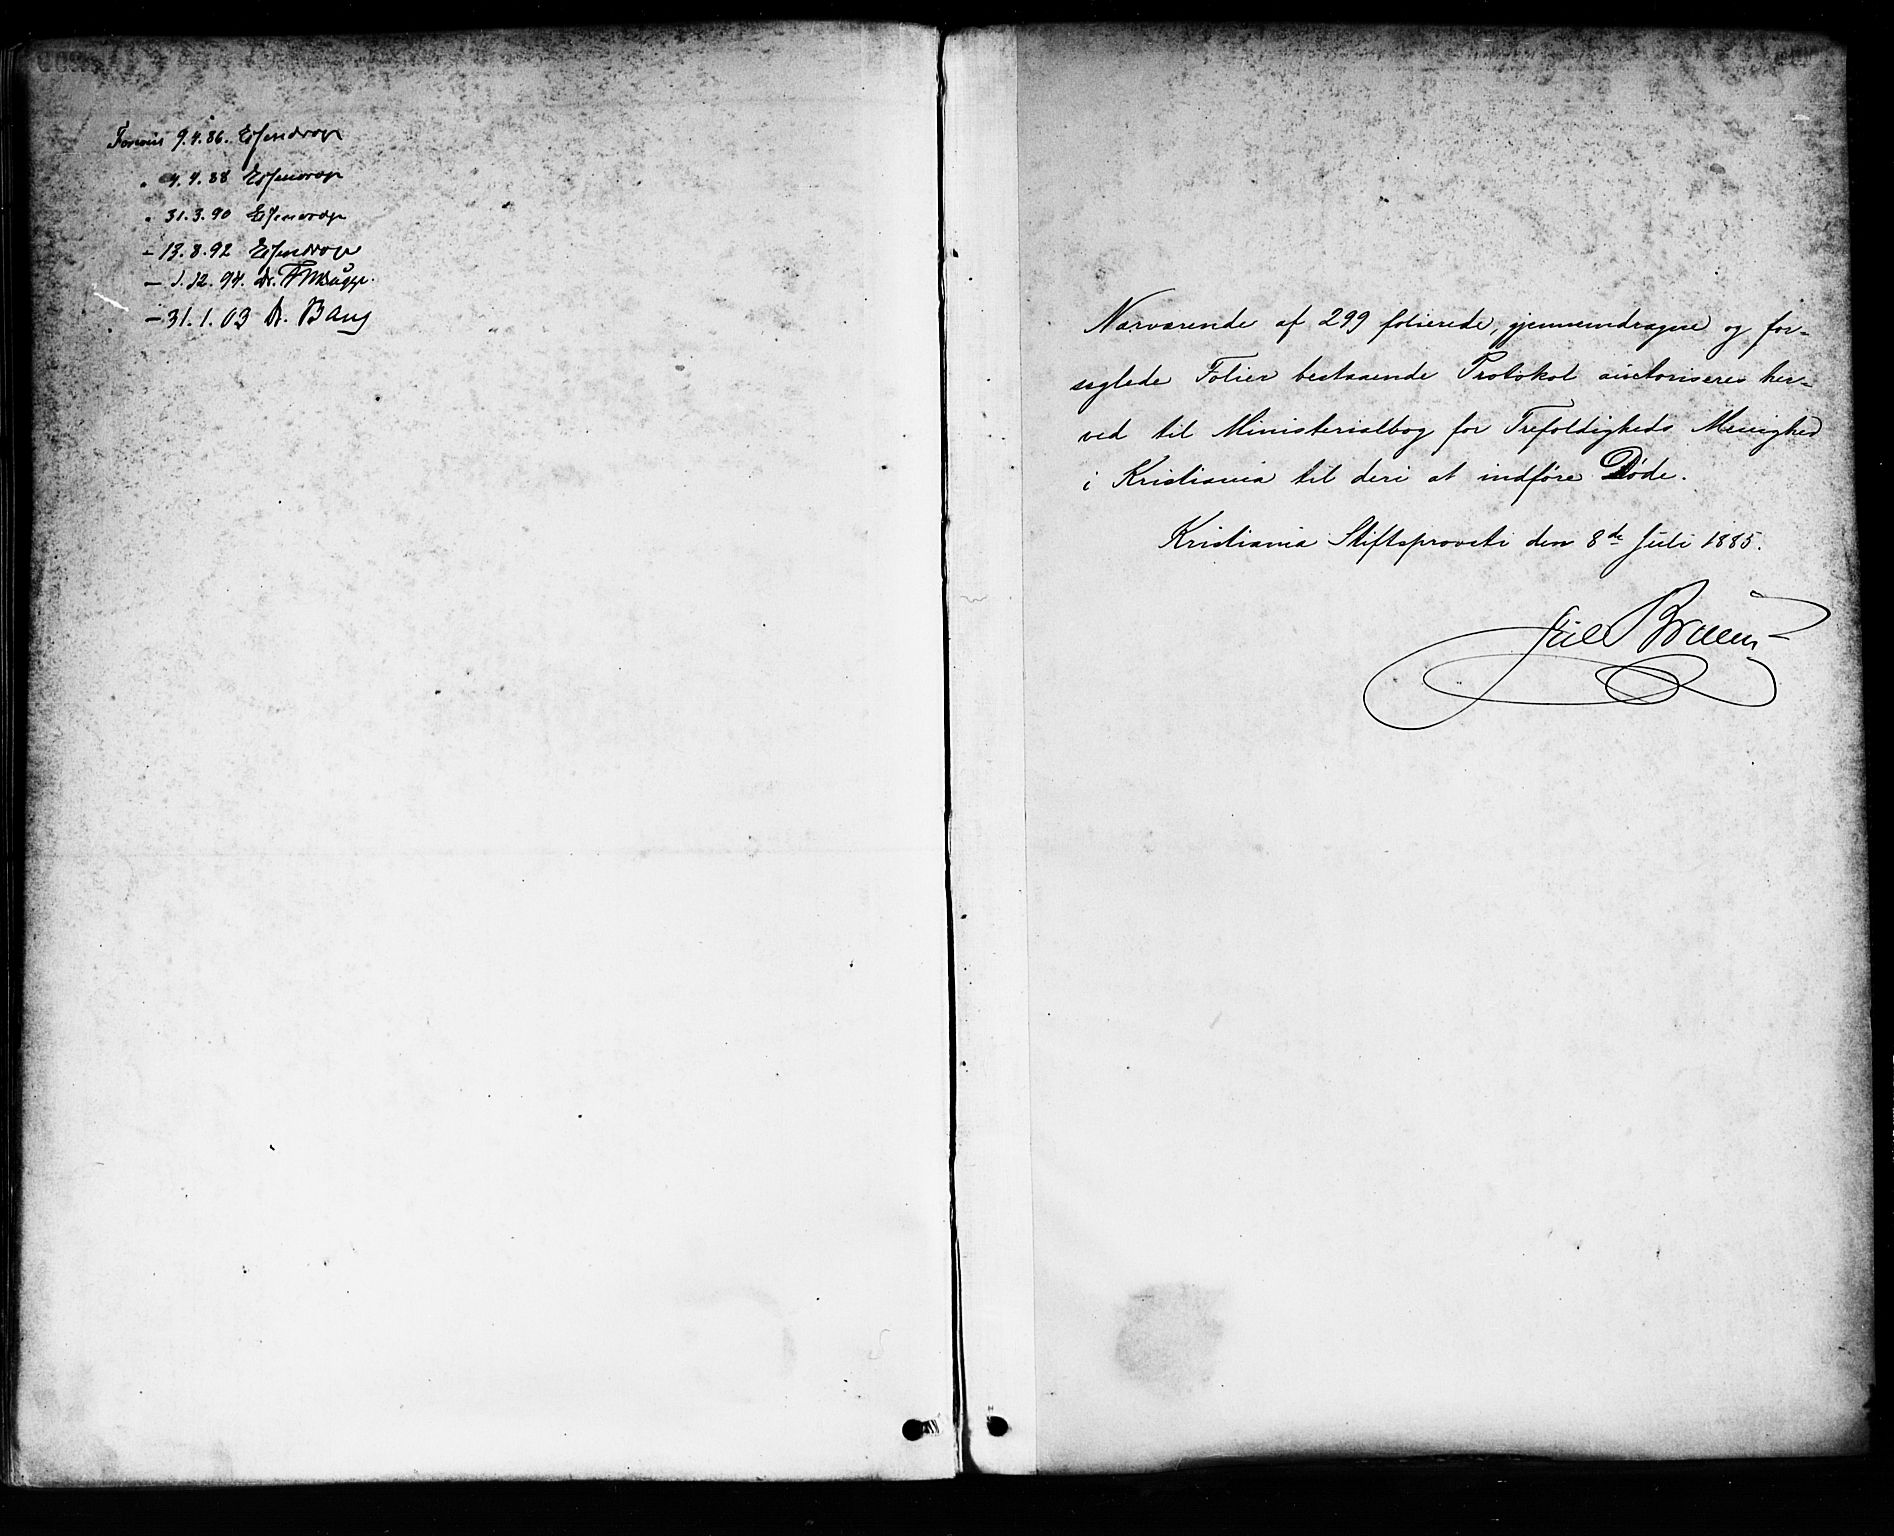 Forevist 9.4.86. Essendrop
" 4.4.88 Essendrop
" 31.3.90 Essendrop
- 13.8.92 Essendrop
- 1.12.94. Dr. Fr. W. Bugge.
- 31.1.03 Dr. Bang
Nærværende af 299 folierede, gjennemdragne og for-
seglede Folier bestaaende Protokol auctoriseres her-
ved til Ministerialbog for Trefoldigheds Menighed
i Kristiania til deri at indføre Døde.
Kristiania Stiftsprovsti den 8de Juli 1885.
Jul Bruun